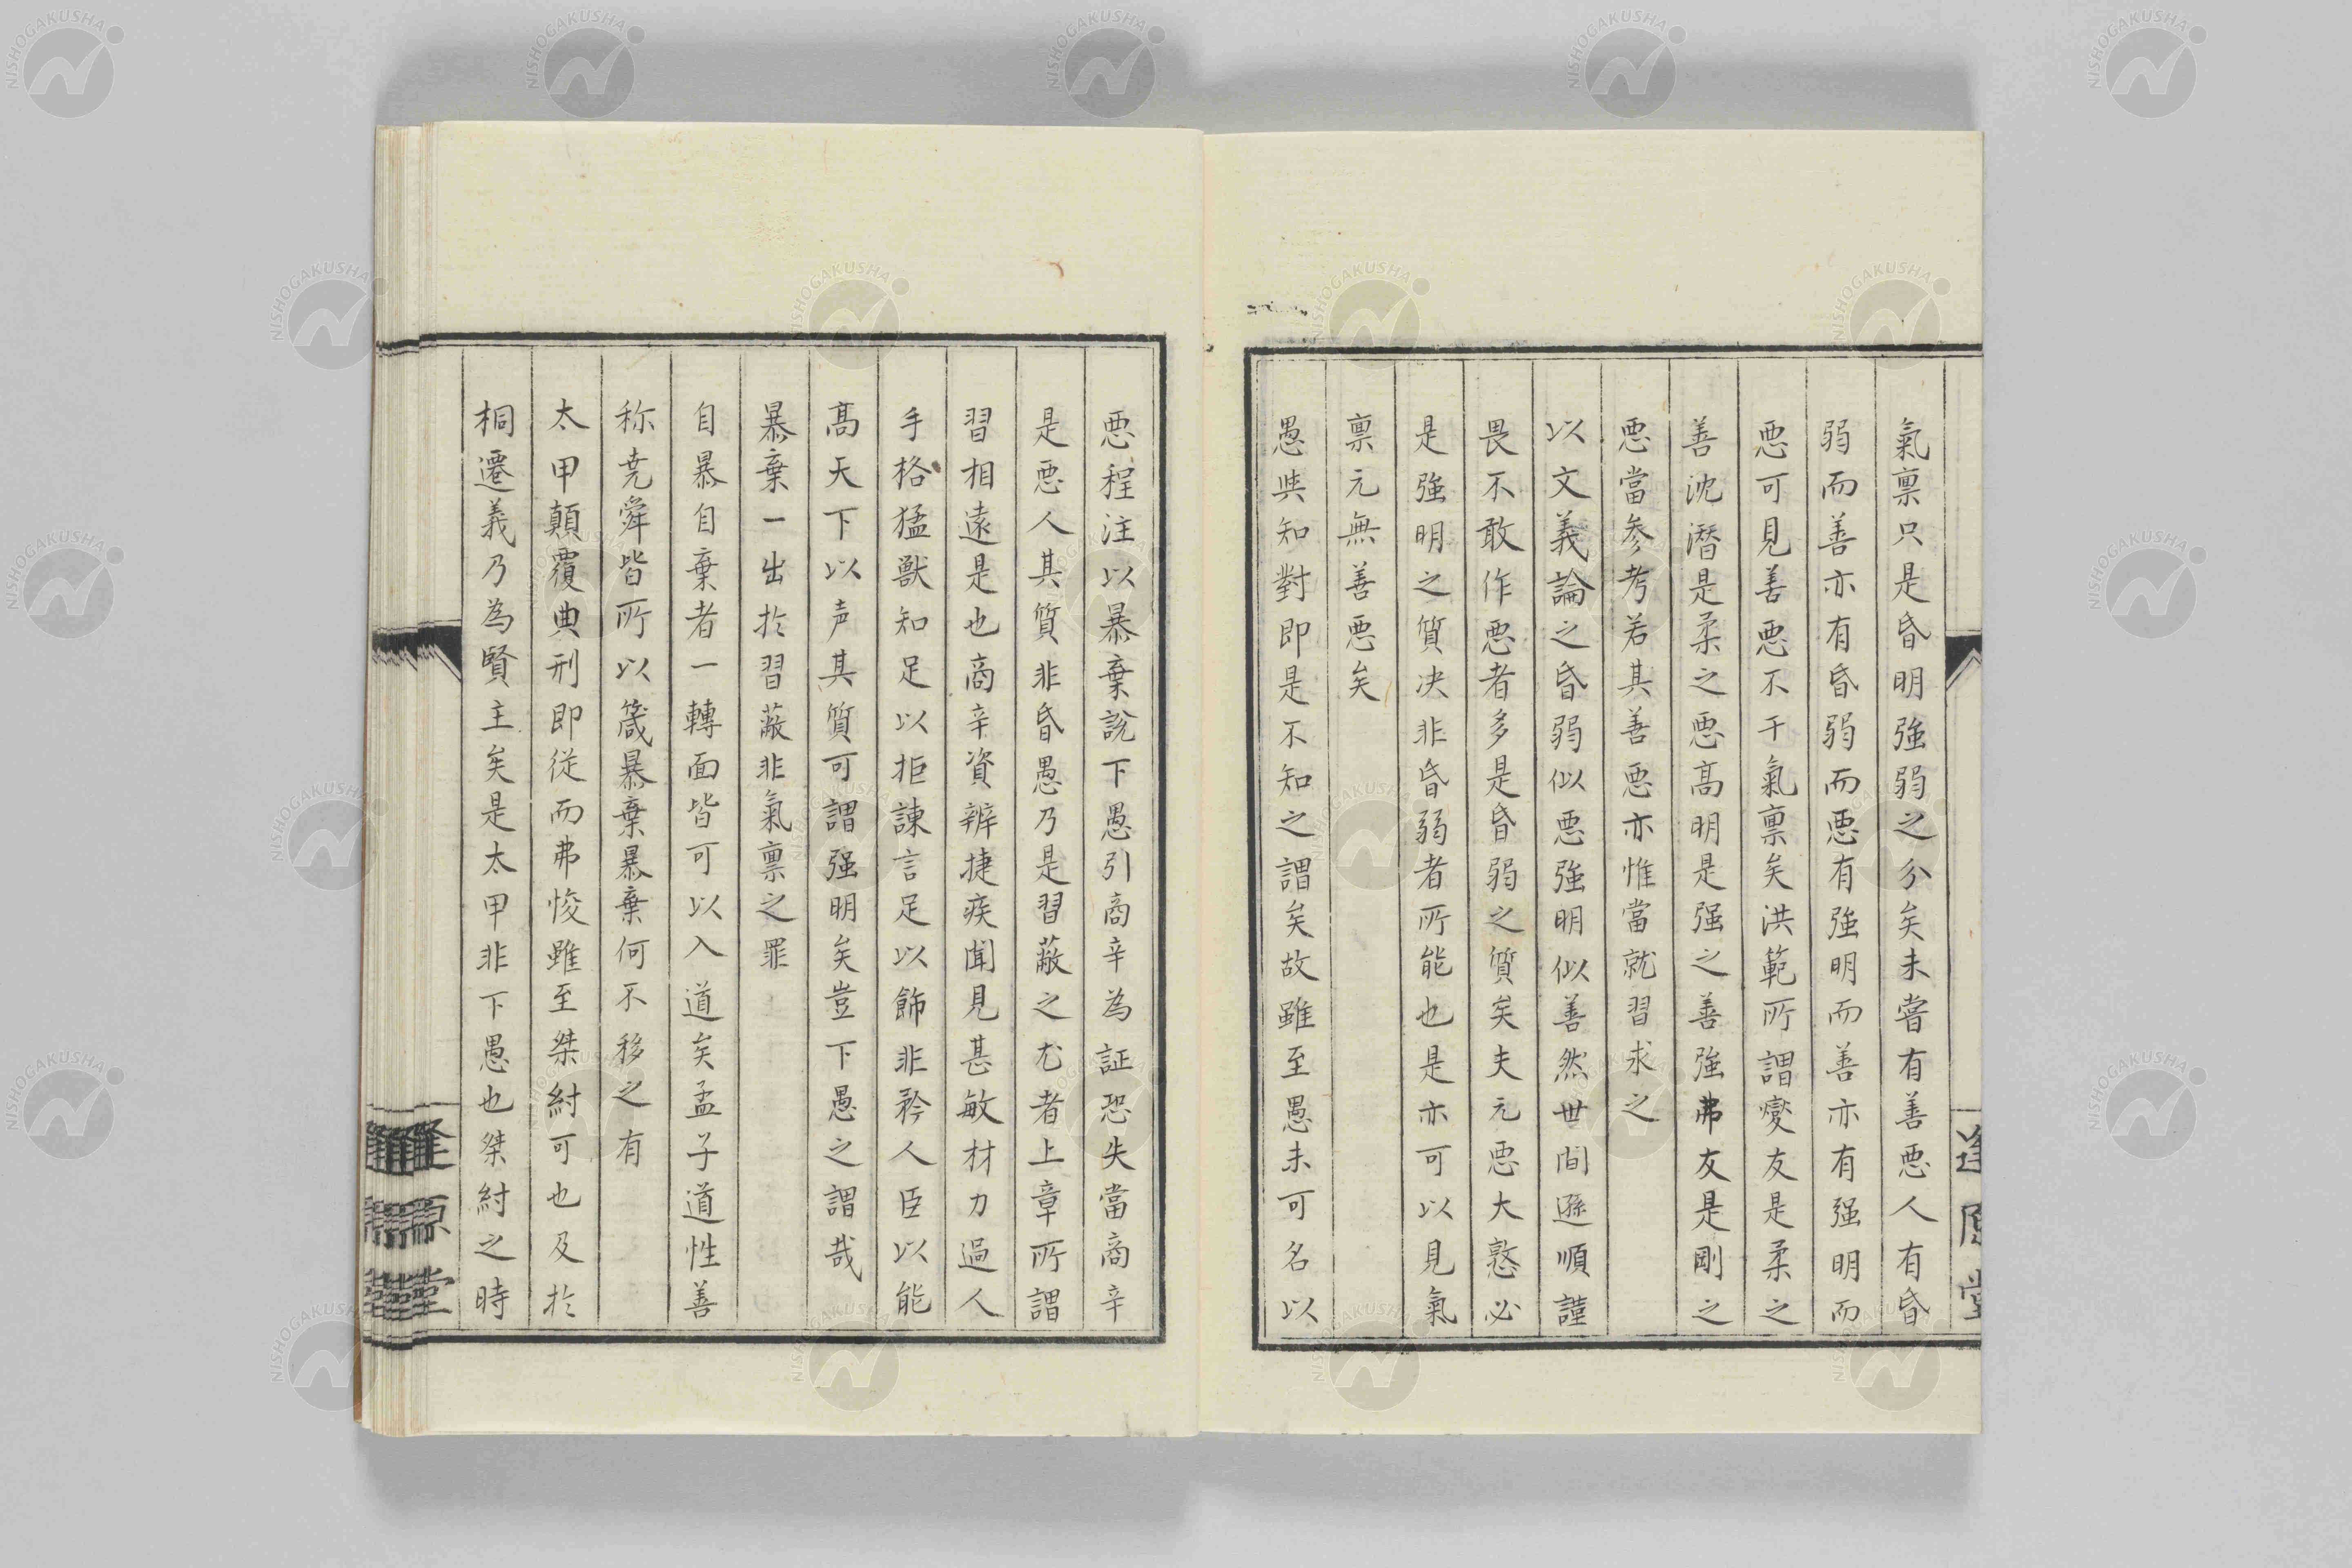 氣稟只是昏明強弱之分矣未嘗有善悪人有昏
弱而善亦有昏弱而悪有強明而善亦有强明而
悪可見善悪不干氣稟矣洪範所謂燮友是柔之
善沈潛是柔之悪高明是强之善強弗友是剛之
悪當参考若其善悪亦惟當就習求之
以文義論之昏弱似悪強明似善然世間遜順謹
畏不敢作悪者多是昏弱之質矣夫元悪大憝必
是強明之質决非昏弱者所能也是亦可以見氣
稟元無善悪矣
愚與知對即是不知之謂矣故雖至愚未可名以
悪程注以暴棄說下愚引商辛為証恐失當商辛
是悪人其質非昏愚乃是習蔽之尤者上章所謂
習相遠是也商辛資辨捷疾聞見甚敏材力過人
手格猛獣知足以拒諌言足以飾非矜人臣以能
高天下以声其質可謂强明矣豈下愚之謂哉
暴棄一出於習蔽非氣稟之罪
自暴自棄者一轉面皆可以入道矣孟子道性善
称尭舜皆所以箴暴棄暴棄何不移之有
太甲顛覆典刑即従而弗悛雖至桀紂可也及於
桐遷義乃為賢主矣是太甲非下愚也桀紂之時
逢原堂
NISHOGAKUSHA